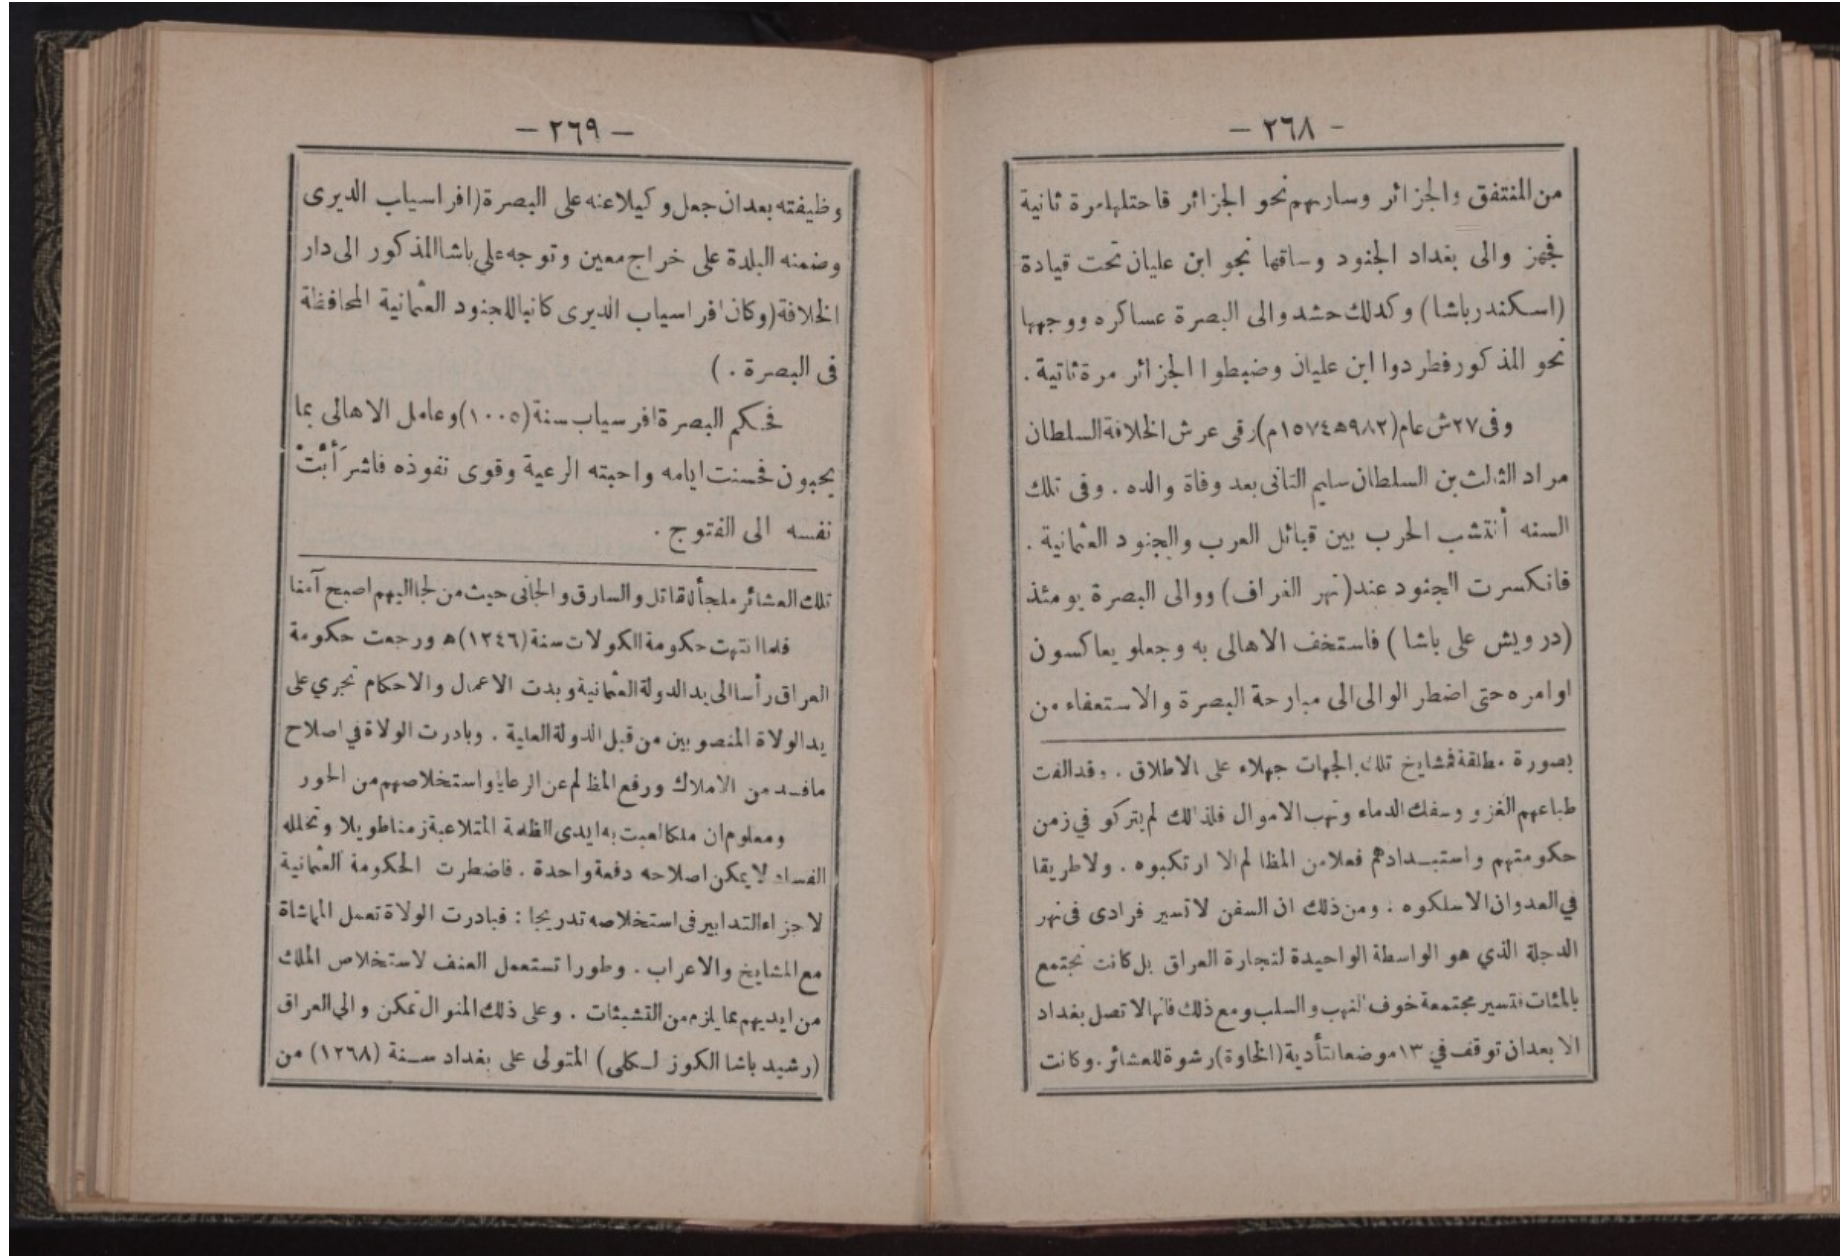 - ٢٦٨ -
من المنتفق والجزائر وساربهم نحو الجزائر قاحتلها مرة ثانية
فجهز والى بغداد الجنود وساقها نجو ابن عليان تحت قيادة
(اسكندر باشا) وكدلك حشد والى البصرة عساكره ووجهها
نحو المذكور فطردوا ابن عليان وضبطوا الجزائر مرة ثاتية .
وفى ٢٧ ش عام (٩٨٢ھ ١٥٧٤م) رقى عرش الخلافة السلطان
مراد الثالث بن السلطان سليم الثانى بعد وفاة والده . وفى تلك
السنه أنتشب الحرب بين قبائل العرب والجنود العثمانية .
فانكسرت الجنود عند (نهر الغراف) ووالى البصرة يومئذ
(درويش على باشا) فاستخف الاهالى به وجعلو يعاكسون
اوامره حتى اضطر الوالى الى مبارحة البصرة والاستعفاء من
بصورة مطلقة فمشايخ تلك الجهات جهلاء على الاطلاق . وقد الفت
طباعهم الغزو وسفك الدماء ونهب الاموال فلذالك لم يتركو في زمن
حكومتهم واستبدادهم فعلا من المظالم الا ارتكبوه . ولا طريقا
في العدوان الا سلكوه : ومن ذلك ان السفن لا تسير فرادى فى نهر
الدجلة الذي هو الواسطة الواحيدة لتجارة العراق بل كانت تجتمع
بالمئات فتسير مجتمعة خوف النهب والسلب ومع ذلك فانها لا تصل بغداد
الا بعد ان توقف في ١٣ موضعا لتأدية (الخاوة) رشوة للعشائر . وكانت
- ٢٦٩ -
وظيفته بعد ان جعل وكيلا عنه على البصرة (افراسياب الديرى
وضمنه البلدة على خراج معين وتوجه على باشا المذكور الى دار
الخلافة (وكان افراسياب الديرى كاتبا للجنود العثمانية المحافظة
فى البصرة . )
فحكم البصرة افرسياب سنة (١٠٠٥) وعامل الاهالى بما
يحبون فحسنت ايامه واحبته الرعية وقوى نفوذه فاشرَأَبّتْ
نفسه الى الفتوج .
تلك العشائر ملجأ لقاتل والسارق والجانى حيث من لجا اليهم اصبح آمنا
فلما انتهت حكومة الكولات سنة (١٢٤٦) ھ ورجعت حكومة
العراق رأسا الى يد الدولة العثمانية وبدت الاعمال والاحكام تجري على
يد الولاة المنصوبين من قبل الدولة العلية . وبادرت الولاة في اصلاح
مافسد من الاملاك ورفع المظالم عن الرعايا واستخلاصهم من الحور
ومعلوم ان ملكا لعبت به ايدى الظلمة المتلاعبة زمنا طويلا وتخلله
الفساد لا يمكن اصلاحه دفعة واحدة . فاضطرت الحكومة العثمانية
لاجزاء التدابير فى استخلاصه تدريجا : فبادرت الولاة تعمل المماشاة
مع المشايخ والاعراب . وطورا تستعمل العنف لاستخلاص الملك
من ايديهم بما يلزم من التشبثات . وعلى ذلك المنوال تمكن والي العراق
(رشيد باشا الكوز لسكلى) المتولى على بغداد سنة (١٢٦٨) من